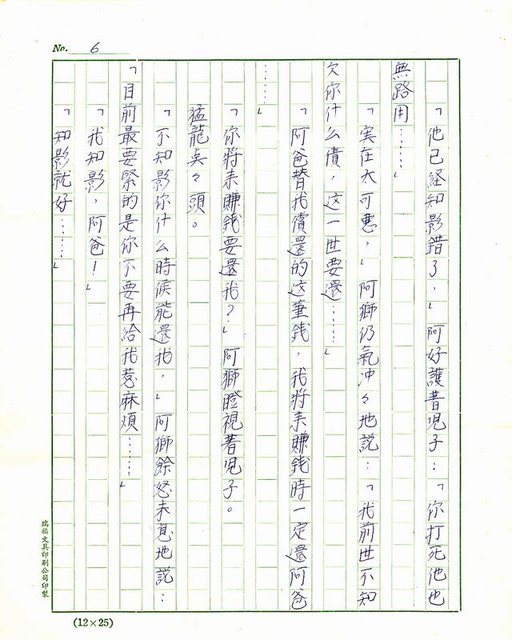 No. 6
「他已経知影錯了，」阿好護著児子：「你打死他也
無路用……」
「実在太可惡，」阿獅仍氣冲々地説：「我前世不知
欠你什么債，这一世要還……」
「阿爸替我償還的这筆錢，我將来賺錢時一定還阿爸
……」
「你將来賺錢要還我？」阿獅瞪視著児子。
猛龍点々頭。
「不知影你什么時候能還我，」阿獅餘怒未息地説：
「目前最要緊的是你不要再給我惹麻煩……」
「我知影，阿爸！」
「知影就好……」
瑞福文具印刷公司印製
(12×25)